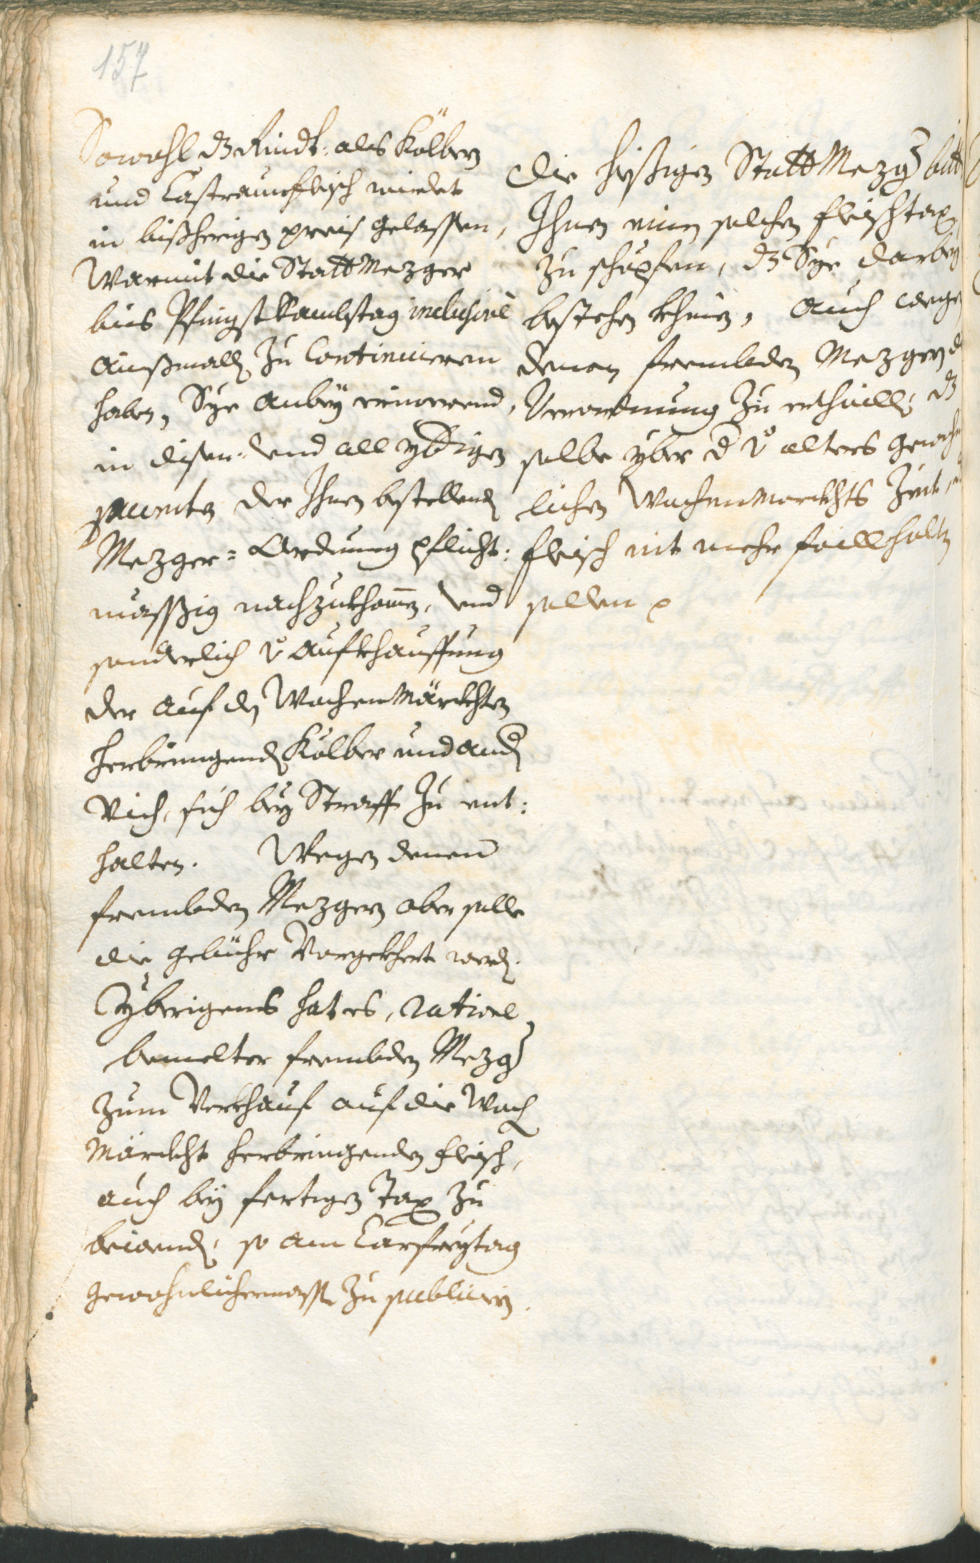 157
Sowohl dz Rindt: als Kölber
und Castraunfleisch wirdet
in bißherigen preis gelassen,
Warmit die Statt Mezger
bies Pfingst Sambstag inclusive
außmallen zu Continuieren
haben, Sye anbey erinnerend,
in disen: und all ybrigen
puncten der Ihnen bestellenden
Mezger = Ordnung pflicht:
mässig nachzukhomen, und
sonderlich von Aufkhauffung
der auf den Wochen Märckhten
herbringenden Kölber und andern
Vich, sich bey Straff zu ent:
halten. Wegen denen
frembden Mezgern aber solle
die gebühr Vorgekhert werden.
Yberigens hat es, ratione
bemelter frembden Mezger
zum Verkhauf auf die Wochen
Märckht herbringenden fleisch,
auch bey fertigen Tax zu
bewenden, so am Carfreytag
gewohnlichermassen zu publicieren.
Die hießigen Statt Mezger bitten
Ihnen einen solchen fleischtax
zu schöpfen, dz Sye darbey
bestehen khönen, auch wegen
denen frembden Mezgern die
Verordnung zu erthaillen, dz
selbe yber die von alters gewohn
lichen Wochenmarckhts Zeit, ein
fleisch nit mehr faill halten
sollen